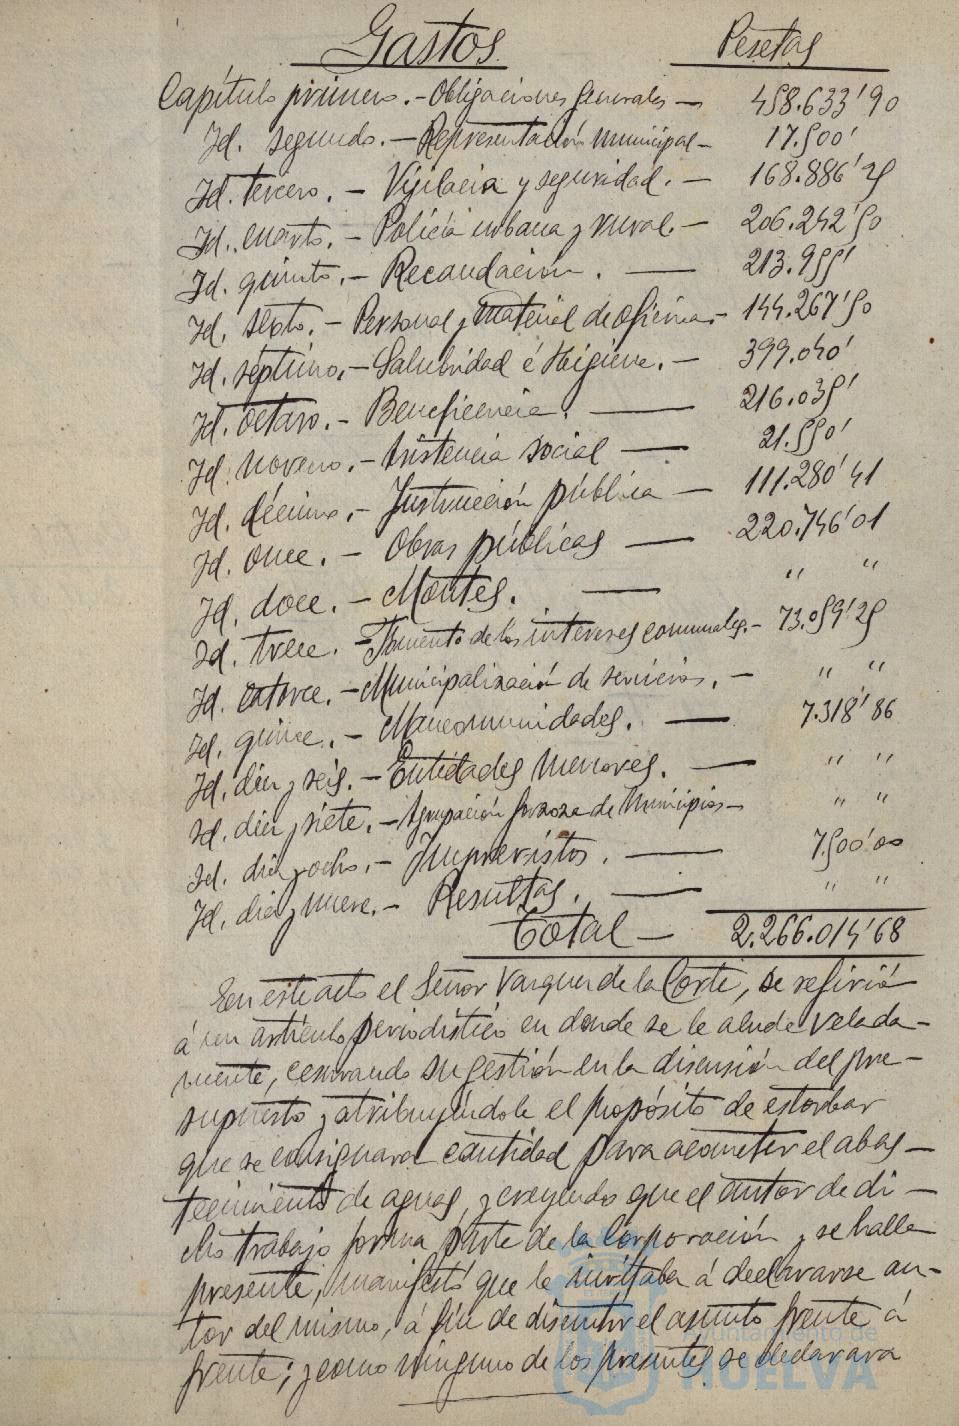 Gastos Pesetas
Capítulo primero.- Obligaciones generales — 458.633'90
Id. segundo. — Representación municipal - 17.500'
Id. tercero. — Vijilacia y seguridad. — 168.886'25
Id. cuarto. - Policía urbana y rural. — 206.242'50
Id. quinto. - Recaudación. — 213.955'
Id. sexto. - Personal y material de oficinas. - 144.267'50
Id. séptimo. - Salubridad é Higiene. - 399.040'
Id. octavo. - Beneficencia. — 216.035'
Id. noveno. - Asistencia social — 21.550'
Id. décimo. - Instrucción pública — 111.280'41
Id. once. - Obras públicas — 220.746'01
Id. doce. - Montes. — " "
Id. trece. - Fomento de los intereses comunales. - 73.059'25
Id. catorce. - Municipalización de servicios. - " "
Id. quince. - Mancomunidades. — 7.318'86
Id. diez y seis. - Entidades menores. — " "
Id. diez y siete. - Agrupación forzosa de Municipios - " "
Id. diez y ocho. - Imprevistos. — 7.500'00
Id. diez y nueve. - Resultas. — " "
Total — 2.266.014'68
En este acto el Señor Vazquez de la Corte, se refirió
á un artículo periodístico en donde se le alude velada-
mente, censurando su gestión en la discusión del pre-
supuesto y atribuyéndole el propósito de estorbar
que se consignara cantidad para acometer el abas-
tecimiento de aguas, y creyendo que el autor de di-
cho trabajo forma parte de la Corporación y se halla
presente, manifestó que le invitaba á declararse au-
tor del mismo, á fin de discutir el asunto frente á
frente; y como ninguno de los presentes se declarara
Ayuntamiento de
HUELVA